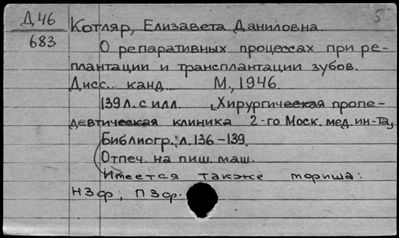 Д 46
683
5
Котляр, Елизавета Даниловна.
О репаративных процессах при ре-
плантации и трансплантации зубов.
Дисс. канд. М., 1946.
139 л. с илл. (Хирургическая пропе-
девтическая клиника 2-го Моск. мед. ин-та)
Библиогр.: л. 136-139.
Отпеч. на пиш. маш.
Имеется также
НЗФ; ПЗФ.